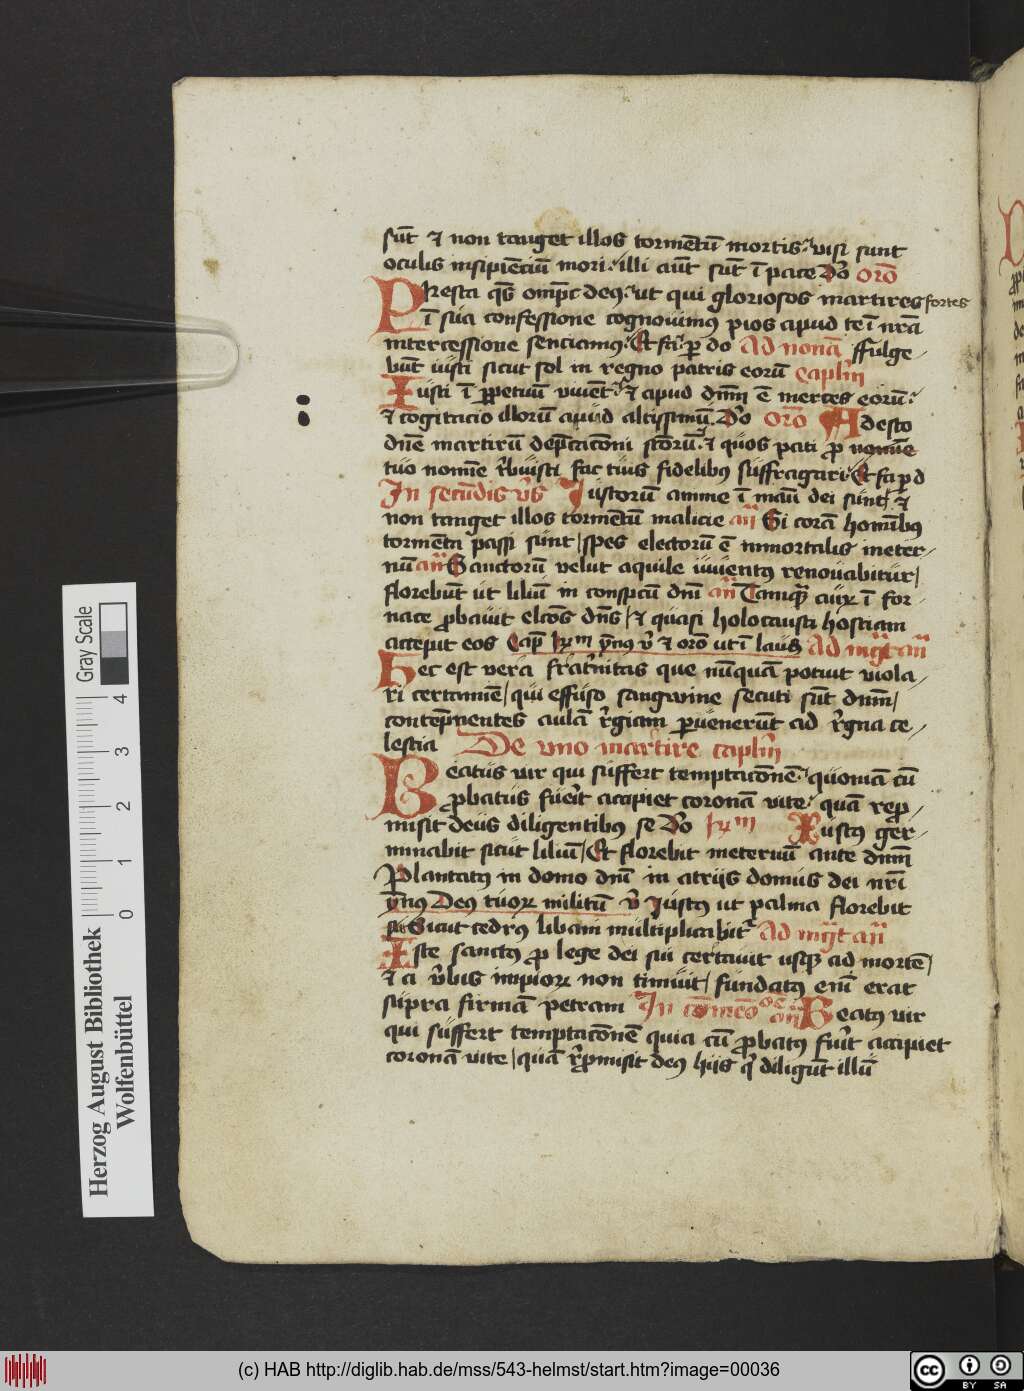 sūt ⁊ non tanget illos tormētū mortis: visi sunt
oculis insipiēciū mori: illi aūt sūt ī pace Do orō
Presta qs omps deus: ut qui gloriosos martires fortes
ī sua confessione cognouimus pios apud te ī nrā
intercessione senciamus: Et fa: p do Ad nonā ffulge-
būt iusti sicut sol in regno patris eorū caplm
Iusti ī ppetuū viuēt: ⁊ apud dnm ē merces eorū:
⁊ cogitacio illorū apud altissimū. Do orō Adesto
dne martirū depcaconi storū: ⁊ quos pati pro nomine
tuo nomie tbuisti fac tuis fidelibus suffragari: Et fa p d
In secūdis vs Iustorū anime ī manu dei sunt: ⁊
non tanget illos tormētū malicie an Si corā homībus
tormēta passi sunt / spes electorū ē immortalis ineter-
nū an Sanctorū velut aquile iuuentus renouabitur /
florebūt ut liliū in conspcū dni an Tamqua aurū ī for-
nace probauit elcos dns / ⁊ quasi holocausti hostiam
accepit eos Cap hym ymus v ⁊ orō ut ī laud Ad mgt an
Hec est vera fratnitas que nūquā potuit viola-
ri certamie / qui effuso sangwine secuti sūt dnm /
contēpnentes aulā rgiam puenerūt ad rgna ce-
lestia De vno martire caplm
Beatus vir qui suffert temptacōnē: quoniā cū
probatus fueit accipiet coronā vite: quā rep-
misit deus diligentibus se Do hym Iustus ger-
minabit sicut liliū / Et florebit ineternū ante dnm
Plantatus in domo dni in atriis domus dei nri
ymus Deus tuorum militū v Iustus ut palma florebit
Sicut cedrus libani multiplicabitur Ad mgt an
Iste sanctus pro lege dei sui certauit usque ad mortē /
⁊ a vbis impiorum non timuit / fundatus eni erat
supra firmā petram In cōmes an Beatus vir
qui suffert temptacōnē quia cū probatus fuit accipiet
coronā vite / quā rpromisit deus hiis qui diligūt illū
Gray Scale
0 1 2 3 4
Herzog August Bibliothek
Wolfenbüttel
(c) HAB http://diglib.hab.de/mss/543-helmst/start.htm?image=00036
cc BY SA